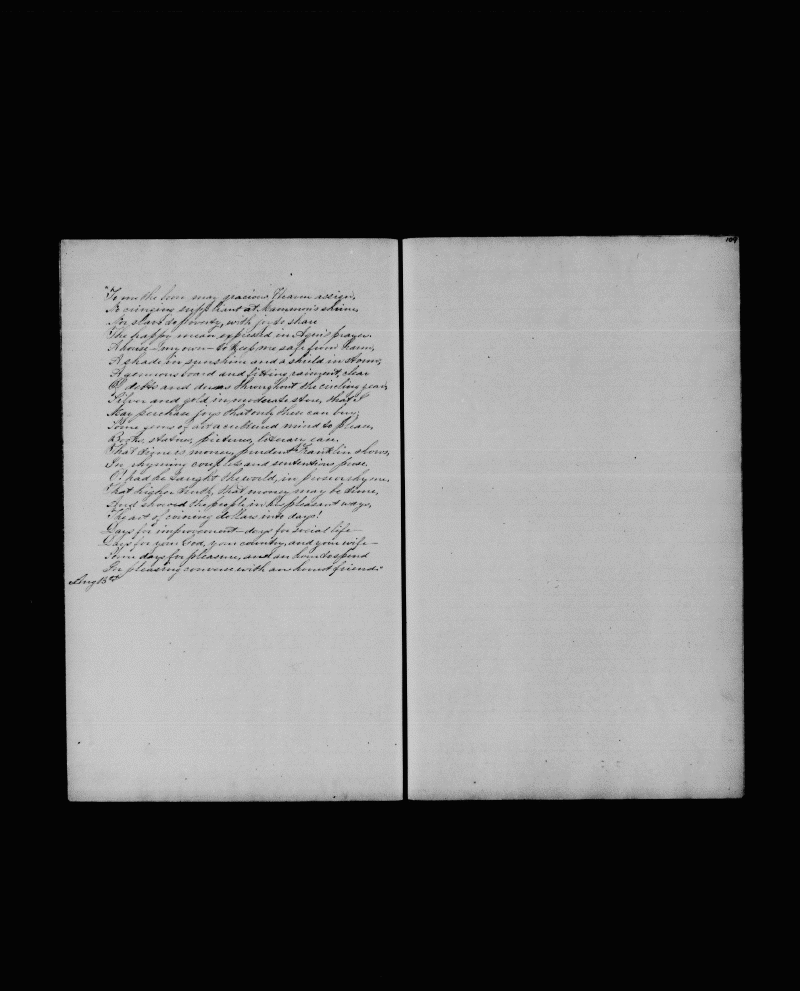 104
"To me the boon may gracious Heaven assign,
No cringing suppliant at Mammon's shrine,
Nor slave to poverty, with joy to share
The happy mean expressed in Agur's prayer.
A house—my own—to keep me safe from harm,
A shade in sunshine and a shield in storm;
A generous board and fitting raiment, clear
Of debts and dues throughout the circling year;
Silver and gold in moderate store, that I
May purchase joys that only these can buy;
Some gems of art a cultured mind to please,
Books, statues, pictures, literary ease.
That time is money, prudent Franklin shows,
In rhyming couplets and sententious prose.
O! had he taught the world, in prose or rhyme,
That higher truth, that money may be time,
And showed the people, in his pleasant ways,
The art of coining dollars into days!
Days for improvement—days for social life—
Days for your God, your country, and your wife—
Some days for pleasure, and an hour to spend
In pleasing converse with an honest friend."
Aug 13th